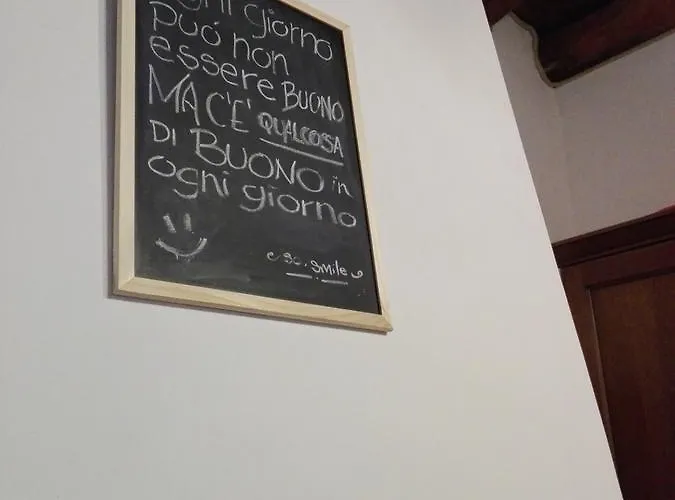 ogni giorno
può non
essere BUONO
MA C'E' QUALCOSA
DI BUONO in
ogni giorno
so. smile